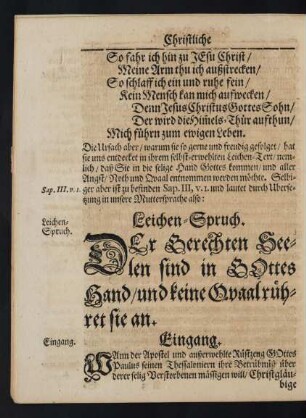 Christliche
So fahr ich hin zu JEsu Christ/
Meine Arm thu ich außstrecken/
So schlaff ich ein und ruhe fein/
Kein Mensch kan mich aufwecken/
Denn Jesus Christus Gottes Sohn/
Der wird die Him̃els-Thür aufthun/
Mich führn zum ewigen Leben.
Die Ursach aber/ warum sie so gerne und freudig gefolget/ hat
sie uns entdecket in ihrem selbst-erwehlten Leichen-Text/ nem-
lich/ daß Sie in die selige Hand Gottes kommen/ und aller
Angst/ Noth und Qvaal entnommen werden möchte. Selbi-
Sap. III. v. 1. ger aber ist zu befinden Sap. III, v. 1. und lautet durch Uberse-
tzung in unsere Muttersprache also:
Leichen-Spruch.
Leichen-
Spruch.
DEr Gerechten See-
len sind in GOttes
Hand/ und keine Qvaal rüh-
ret sie an.
Eingang.
Eingang.
WAnn der Apostel und außerwehlte Rüstzeug GOttes
Paulus seinen Thessaloniern ihre Betrübnüß über
derer selig Verstorbenen mässigen will/ Christgläu-
bige